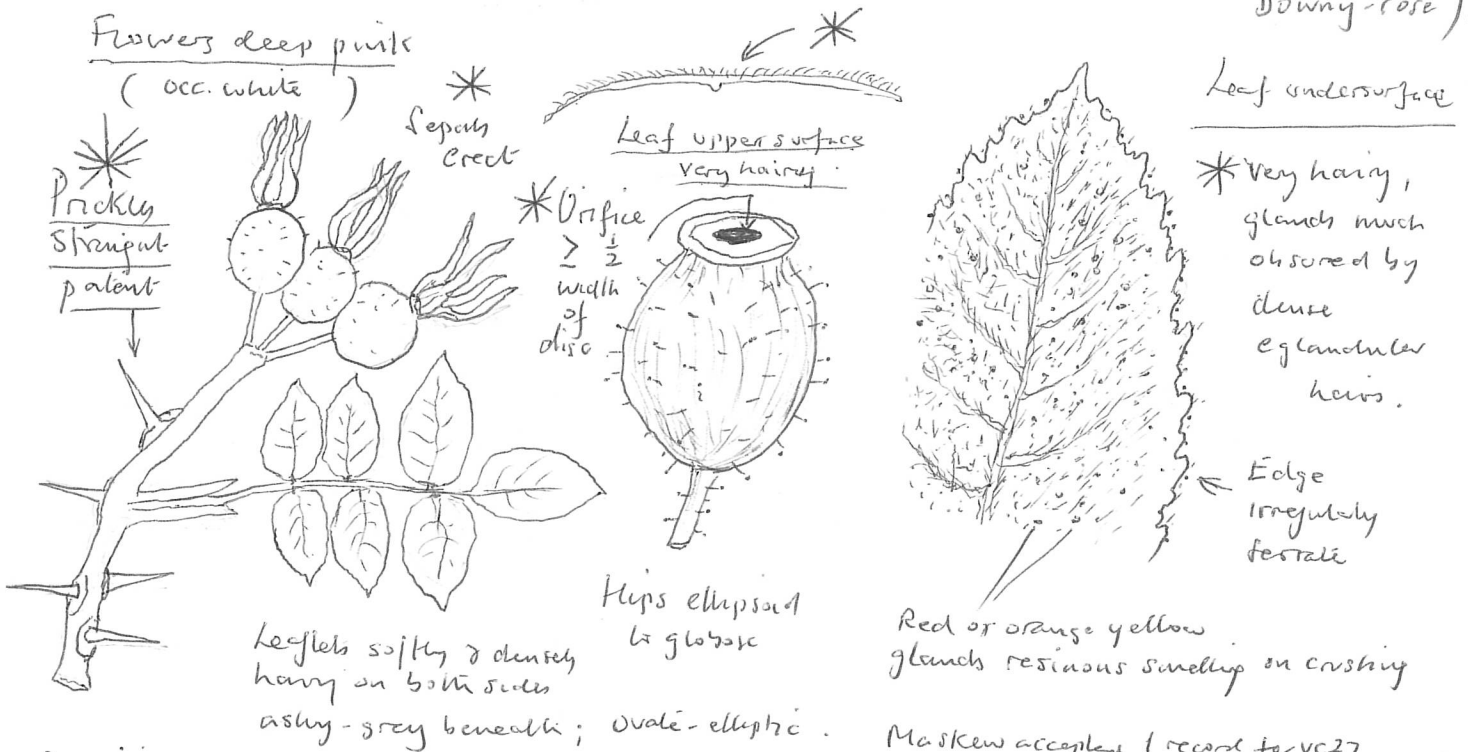 Downy-rose)
Flowers deep pink
( occ. white )
Sepals
erect
Prickles
straight
patent
Leaf upper surface
very hairy.
Orifice
≥ 1/2
width
of
disc
Leaf undersurface
Very hairy,
glands much
obsured by
dense
eglandular
hairs.
Edge
irregularly
serrate
Hips ellipsoid
to globose
Leaflets softly & densely
hairy on both sides
ashy-grey beneath; Ovate-elliptic.
Red or orange yellow
glands resinous smelling on crushing
Maskew accepted 1 record for vc27